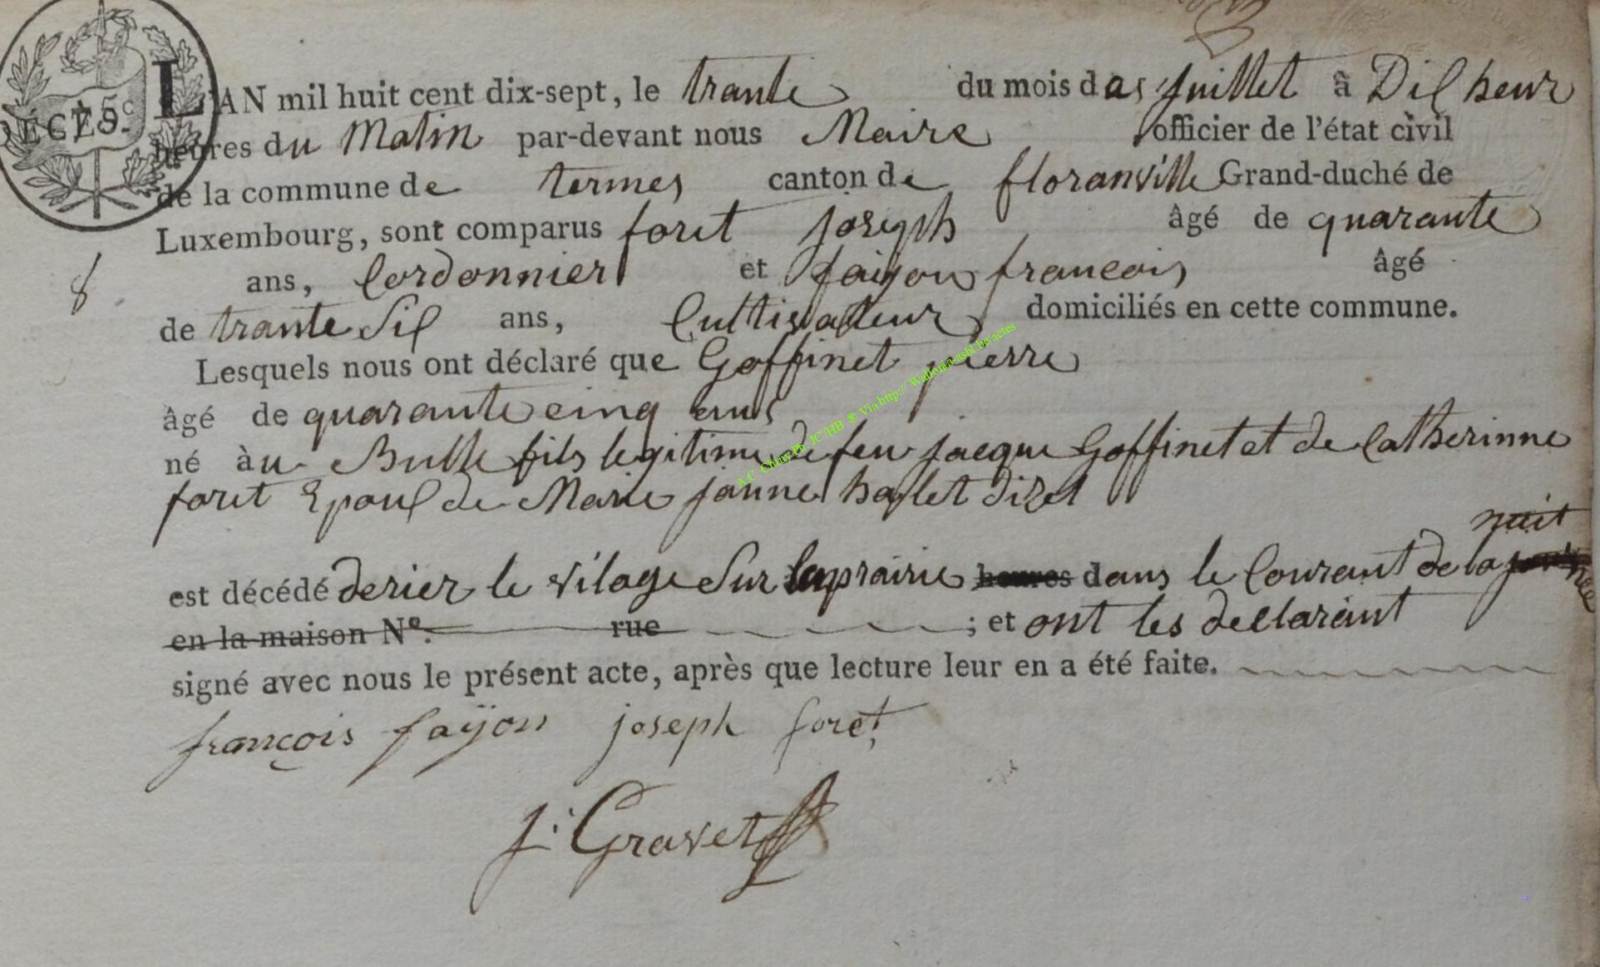 DÉCÈS. 75c
L'AN mil huit cent dix-sept, le trante du mois das juillet à Dil heur
heures du Matin par-devant nous Maire officier de l'état civil
de la commune de termes canton de floranville Grand-duché de
Luxembourg, sont comparus foret joseph âgé de quarante
8
ans, Cordonnier et faiyon francois âgé
de trante Sil ans, Cultivateur domiciliés en cette commune.
Lesquels nous ont déclaré que Goffinet pierre
âgé de quarante cinq ans
né àu Bulle fils legitime de feu jacque Goffinet et de Catherinne
foret Epoul de Marie janne haylet dizel
nuit
est décédé derier le vilage Sur la prairie heures dans le Courant de la
en la maison No. rue ; et ont les declarant
signé avec nous le présent acte, après que lecture leur en a été faite.
françois faÿon joseph foret
J: Gravet